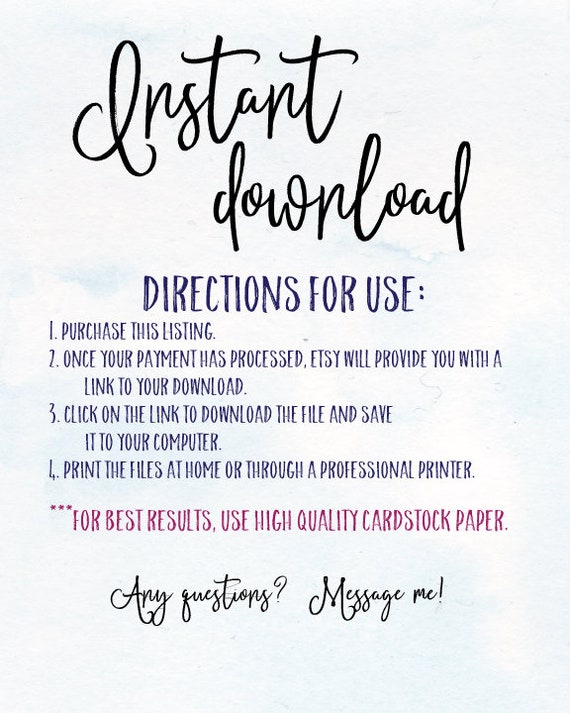 Instant
download
DIRECTIONS FOR USE:
1. PURCHASE THIS LISTING.
2. ONCE YOUR PAYMENT HAS PROCESSED, ETSY WILL PROVIDE YOU WITH A
LINK TO YOUR DOWNLOAD.
3. CLICK ON THE LINK TO DOWNLOAD THE FILE AND SAVE
IT TO YOUR COMPUTER.
4. PRINT THE FILES AT HOME OR THROUGH A PROFESSIONAL PRINTER.
***FOR BEST RESULTS, USE HIGH QUALITY CARDSTOCK PAPER.
Any questions? Message me!